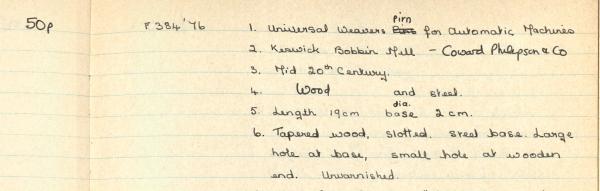 50p F384'76 1. Universal Weavers Pirn for Automatic Machines
2. Keswick Bobbin Mill - Coward Philipson & Co
3. Mid 20th Century.
4. Wood and steel.
5. Length 19cm base dia. 2 cm.
6. Tapered wood, slotted, steel base. Large
hole at base, small hole at wooden
end. Unvarnished.